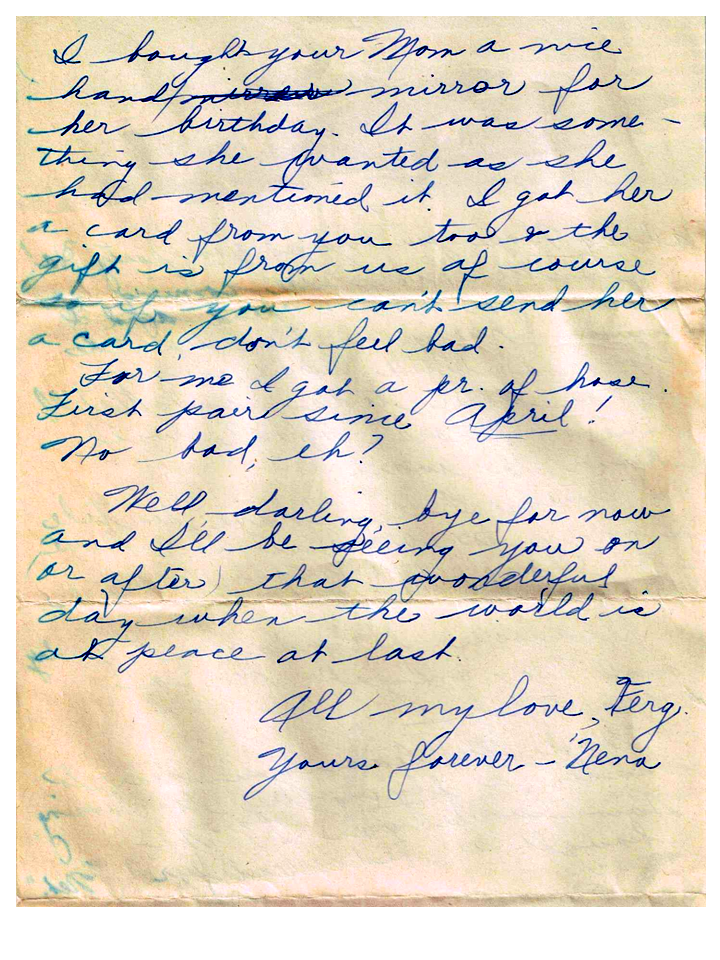 I bought your Mom a nice
hand mirror mirror for
her birthday. It was some-
thing she wanted as she
had mentioned it. I got her
a card from you too & the
gift is from us of course
so if you can't send her
a card, don't feel bad.
For me I got a pr. of hose.
First pair since April!
No bad, eh?
Well, darling, bye for now
and I'll be seeing you on
(or after) that wonderful
day when the world is
at peace at last.
All my love, Ferg.
Yours forever - Nena